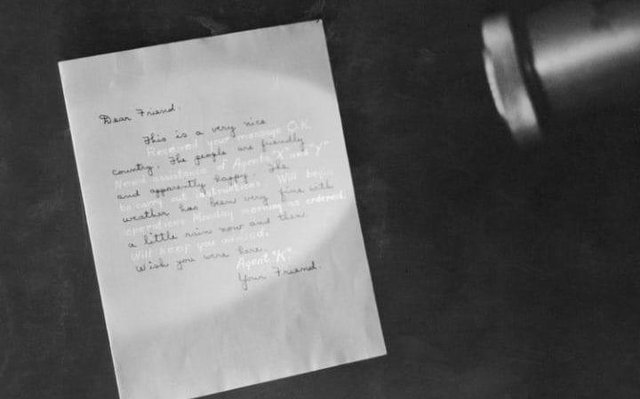 Dear Friend,
This is a very nice
Received your message O.K.
country. The people are friendly
Need assistance of Agents "X" and "Y"
and apparently happy. The
to carry out instructions. Will begin
weather has been very fine with
operation Monday morning as ordered.
a little rain now and then.
Will keep you advised.
Wish you were here.
Agent "K"
Your Friend